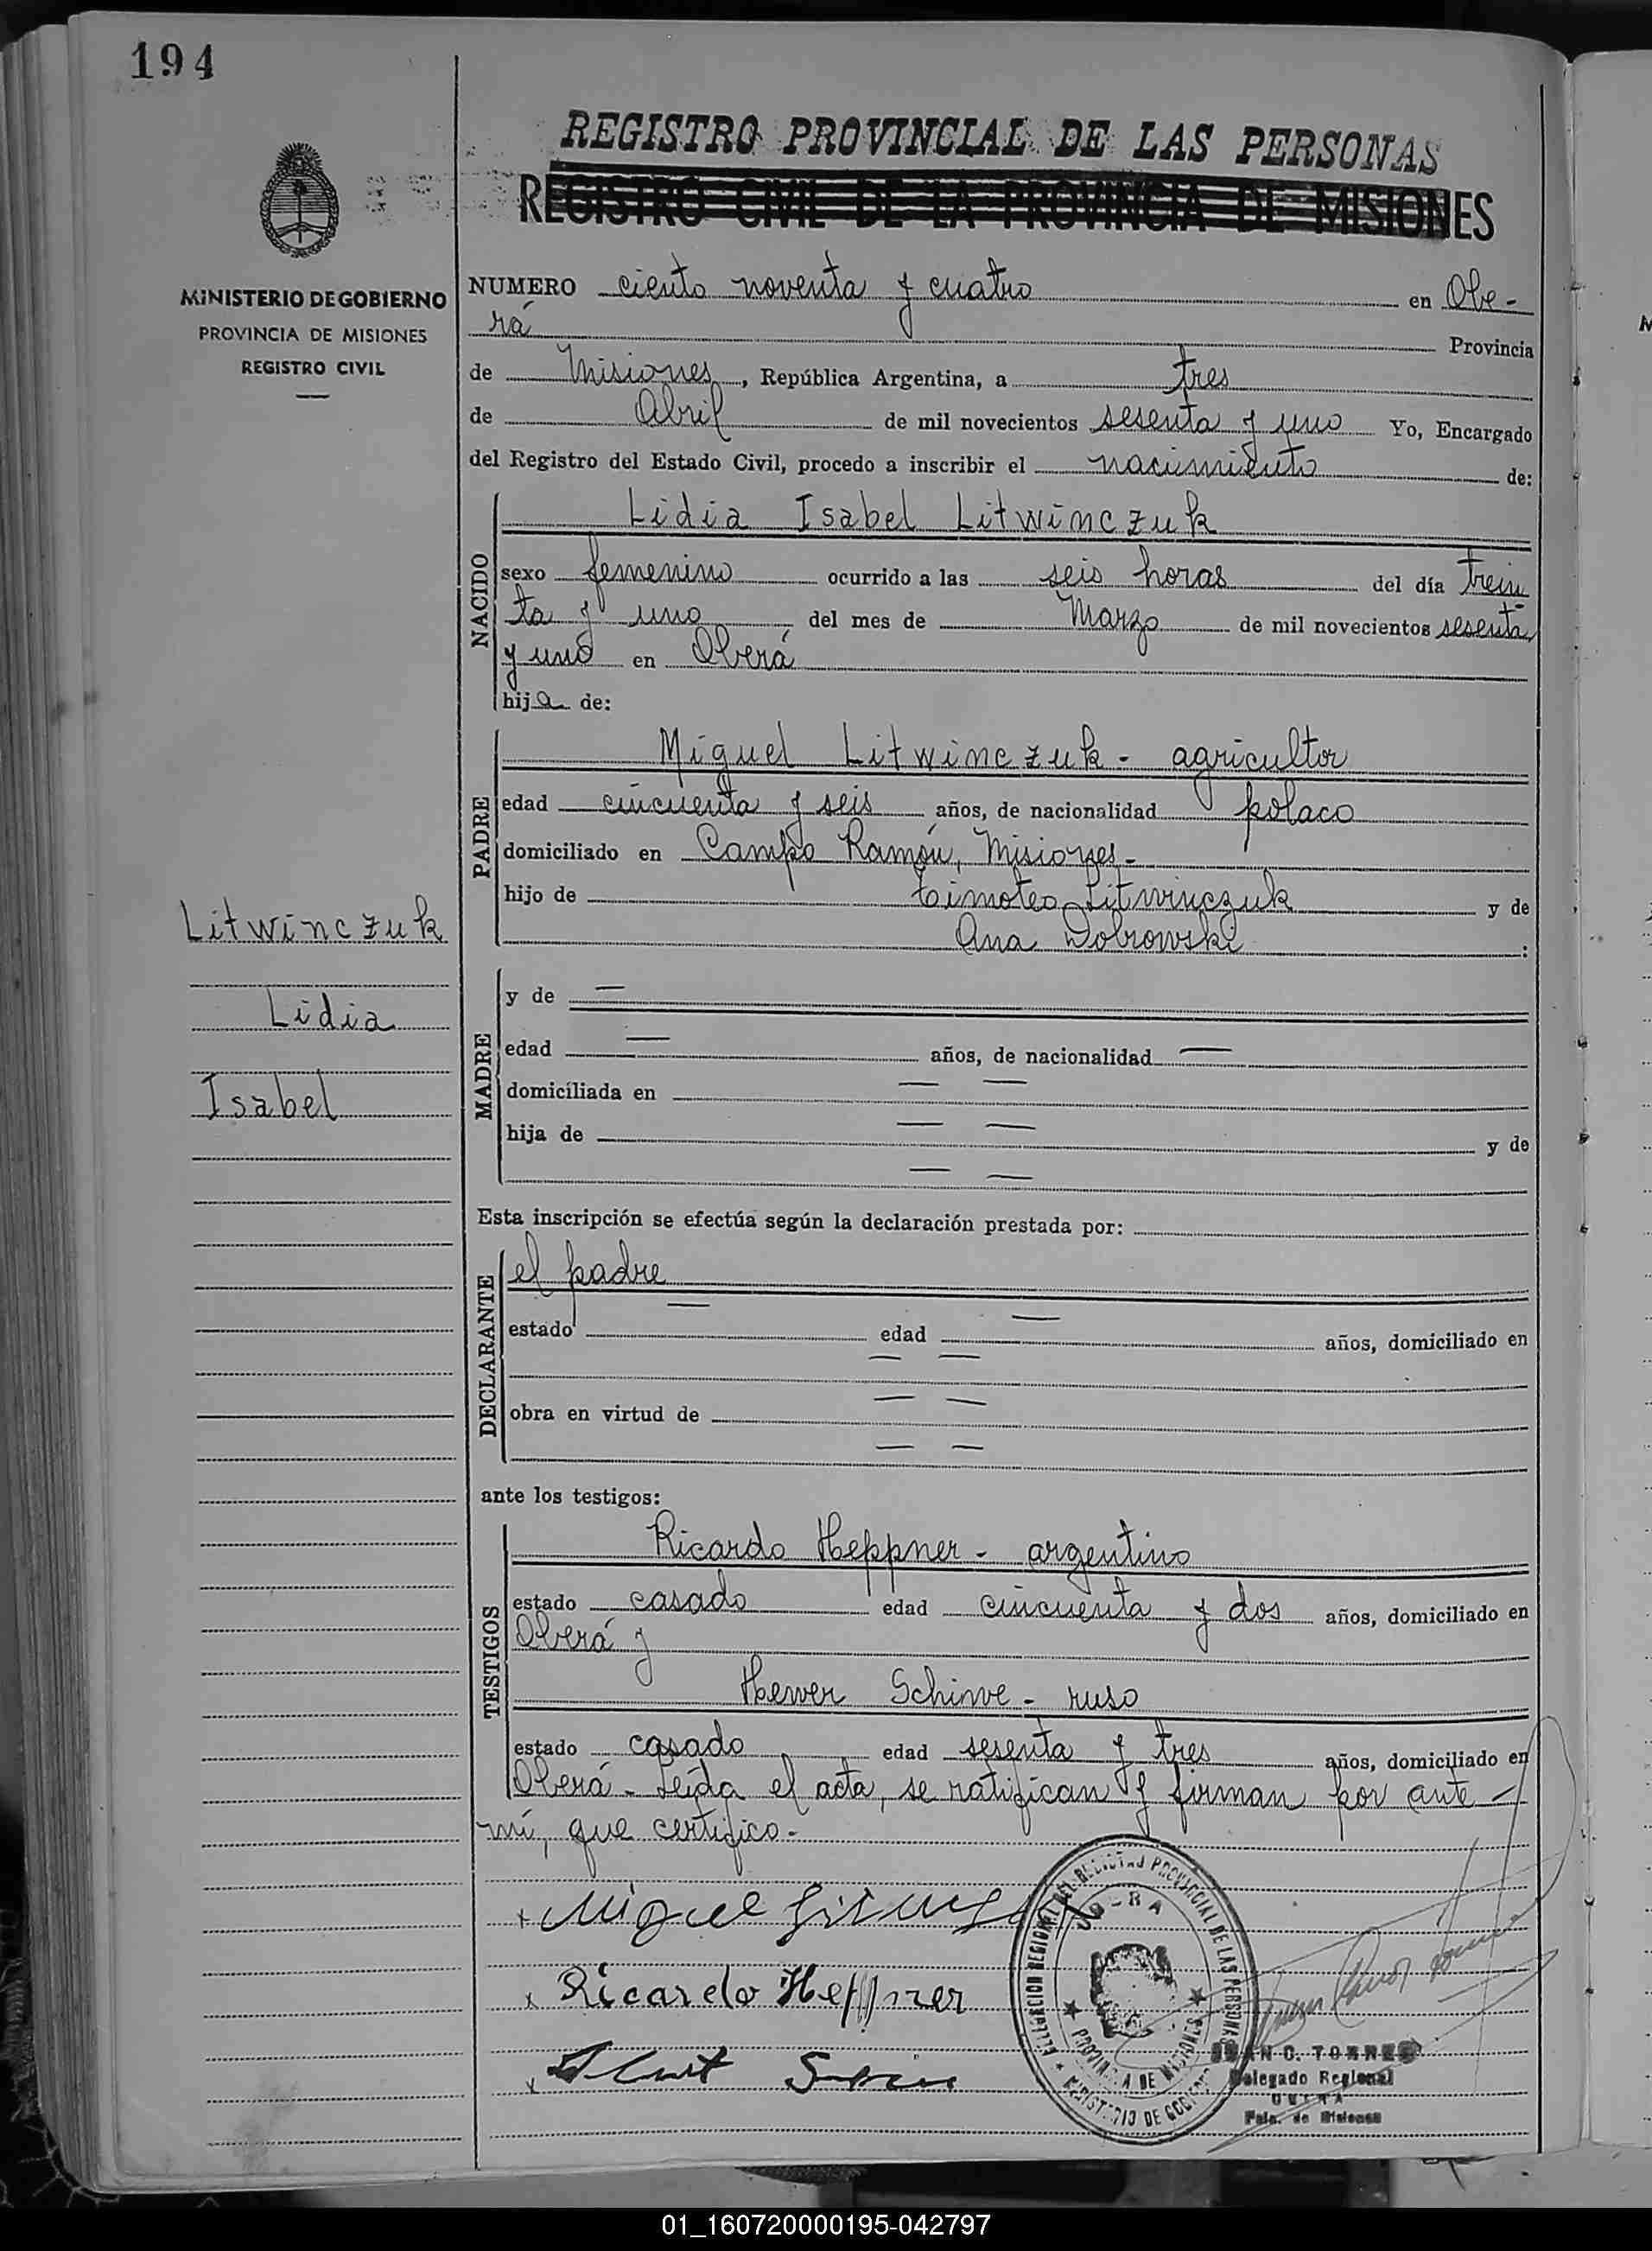 194
REGISTRO PROVINCIAL DE LAS PERSONAS
REGISTRO CIVIL DE LA PROVINCIA DE MISIONES
MINISTERIO DE GOBIERNO
PROVINCIA DE MISIONES
REGISTRO CIVIL
NUMERO ciento noventa y cuatro en Obe-
rá Provincia
de Misiones, República Argentina, a tres
de Abril de mil novecientos sesenta y uno Yo, Encargado
del Registro del Estado Civil, procedo a inscribir el nacimiento de:
NACIDO
Lidia Isabel Litwinczuk
sexo femenino ocurrido a las seis horas del día trein
ta y uno del mes de Marzo de mil novecientos sesenta
y uno en Oberá
hija de:
PADRE
Miguel Litwinczuk - agricultor
edad cincuenta y seis años, de nacionalidad polaco
domiciliado en Campo Ramón, Misiones-
hijo de Timoteo Litwinczuk y de
Ana Dobrowski :
Litwinczuk
Lidia
Isabel
MADRE
y de —
edad — años, de nacionalidad —
domiciliada en — —
hija de — — y de
— —
Esta inscripción se efectúa según la declaración prestada por:
DECLARANTE
el padre
estado — edad — años, domiciliado en
— —
obra en virtud de — —
— —
ante los testigos:
TESTIGOS
Ricardo Heppner - argentino
estado casado edad cincuenta y dos años, domiciliado en
Oberá y
Hewer Schinve - ruso
estado casado edad sesenta y tres años, domiciliado en
Oberá - Leída el acta, se ratifican y firman por ante
mí, que certifico.-
x Miguel
x Ricardo Heppner
x
DELEGACION REGIONAL DEL REGISTRO PROVINCIAL DE LAS PERSONAS
OBERA
PROVINCIA DE MISIONES
MINISTERIO DE GOBIERNO
JUAN C. TORRES
Delegado Regional
OBERA
Pcia. de Misiones
01_160720000195-042797